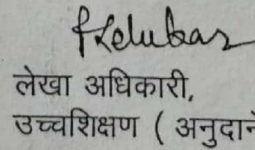 लेखा अधिकारी,
उच्चशिक्षण ( अनुदाने